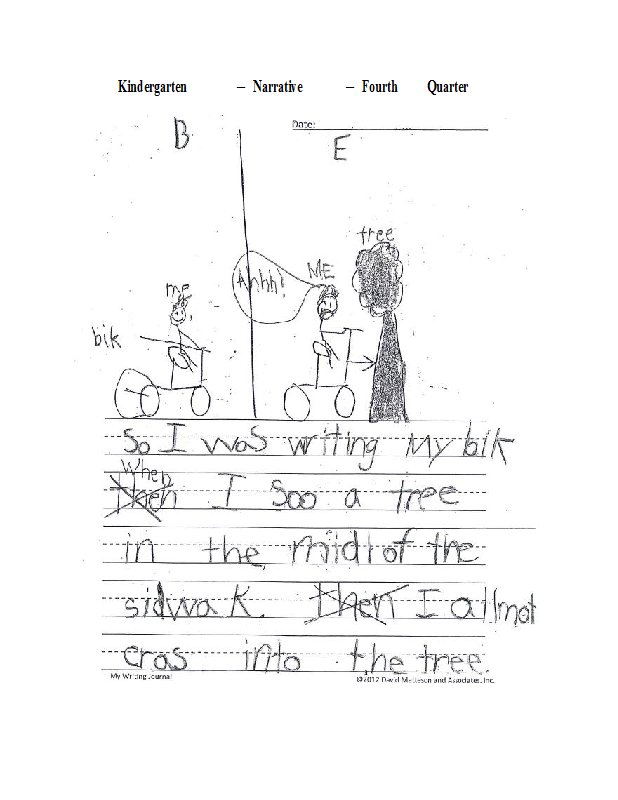 Kindergarten – Narrative – Fourth Quarter
Date:
B
E
tree
Ahhh!
ME
me
bik
So I was writing My bik
When
Then I Soo a tree
in the midl of the
sidwaK. Then I allmot
cras into the tree.
My Writing Journal
©2012 David Matteson and Associates, Inc.